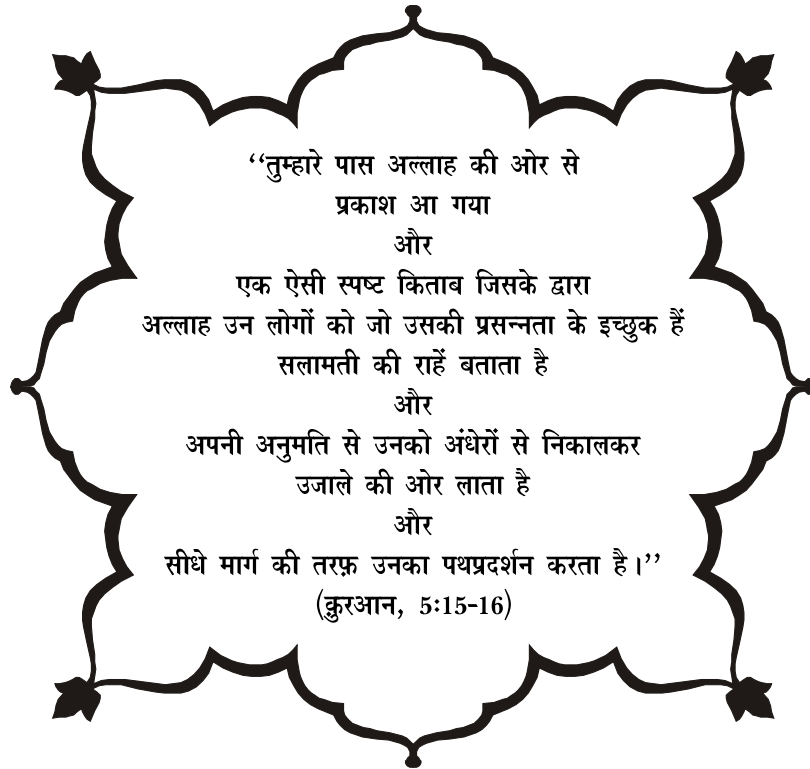 ‘‘तुम्हारे पास अल्लाह की ओर से
प्रकाश आ गया
और
एक ऐसी स्पष्ट किताब जिसके द्वारा
अल्लाह उन लोगों को जो उसकी प्रसन्नता के इच्छुक हैं
सलामती की राहें बताता है
और
अपनी अनुमति से उनको अंधेरों से निकालकर
उजाले की ओर लाता है
और
सीधे मार्ग की तरफ़ उनका पथप्रदर्शन करता है।’’
(क़ुरआन, 5:15-16)